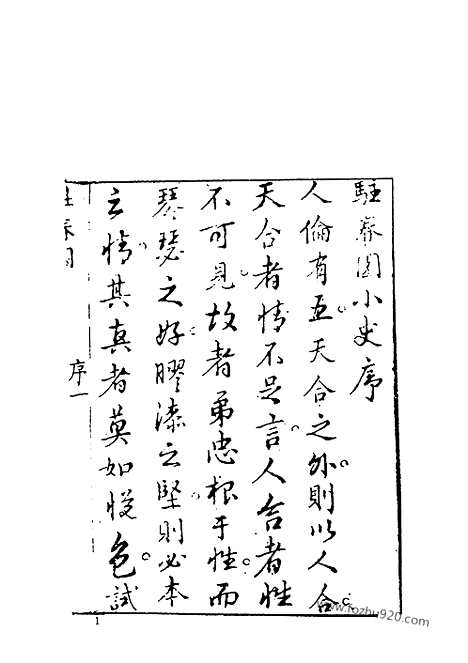 駐春園小史序
人倫有五天合之外則以人合
天合者情不足言人合者性
不可見故者弟忠根于性而
琴瑟之好膠漆之堅則必本
之情其真者莫如悅色試
駐春園
序一
1
www.rozhu920.com